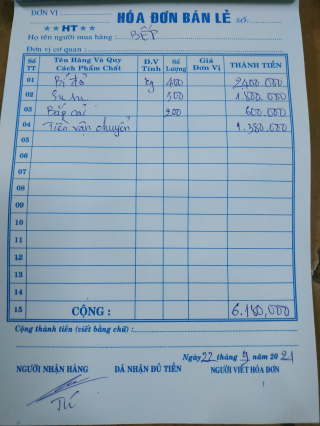 ĐƠN VỊ: HÓA ĐƠN BÁN LẺ SỐ:
★★ HT ★★
Họ tên người mua hàng: BẾP
Đơn vị cơ quan:
Số TT Tên Hàng Và Quy Cách Phẩm Chất Đ.V Tính Số Lượng Giá Đơn Vị THÀNH TIỀN
01 Bí đỏ kg 400 2400.000
02 Su su 300 1.800.000
03 Bắp cải 200 600.000
04 Tiền vận chuyển 1.380.000
05
06
07
08
09
10
11
12
13
14
15 CỘNG: 6.180.000
Cộng thành tiền (viết bằng chữ):
Ngày 22 tháng 9 năm 2021
NGƯỜI NHẬN HÀNG ĐÃ NHẬN ĐỦ TIỀN NGƯỜI VIẾT HÓA ĐƠN